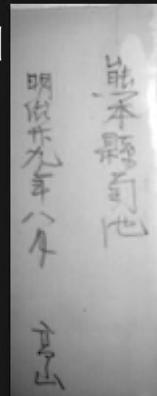 熊本縣菊池
明治廿九年八月
高山